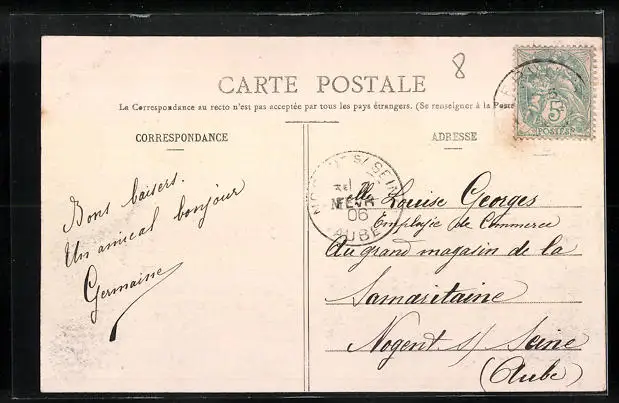 8
CARTE POSTALE
La Correspondance au recto n'est pas acceptée par tous les pays étrangers. (Se renseigner à la Poste
CORRESPONDANCE
ADRESSE
5
POSTES
NOGENT S/ SEINE
FEVR
06
AUBE
Bons baisers.
Un amical bonjour
Germaine
Mlle Louise Georges
Employée de Commerce
Au grand magasin de la
Samaritaine
Nogent s/ Seine
(Aube)